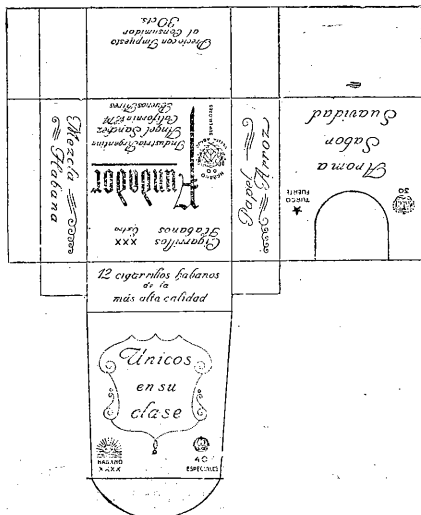 Precio con Impuesto
al Consumidor
30 cts.
Mezcla
Habana
Cigarrillos XXX
Habanos
Extra
Fundador
Industria Argentina
Angel Sanchez
California
Buenos Aires
Papel
Arroz
Aroma
Sabor
Suavidad
TURCO
FUERTE
30
12 cigarrillos habanos
de la
más alta calidad
Unicos
en su
clase
HABANO
XXXX
40
ESPECIALES